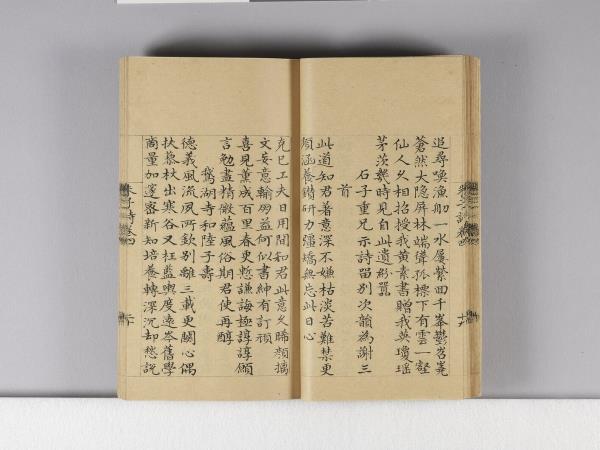 追尋喚漁舠一水屢縈回千峯鬱岧嶤
蒼然大隐屏林端聳孤標下有雲一壑
仙人久相招授我黄素書贈我英瓊瑶
茅茨幾時見自此遺紛囂
石子重兄示詩留别次韻為謝三
首
此道知君著意深不嫌枯淡苦難禁更
須涵養鑽研力彊矯無忘此日心
克己工夫日用間知君此意久晞顔摛
文妄意輸朋益何似書紳有訂頑
喜見薰成百里春更慙謙誨極諄諄願
言勉盡精微藴風俗期君使再醇
鵝湖寺和陸子壽
德義風流夙所欽别離三載更關心偶
扶藜杖出寒谷又枉藍輿度遠岑舊學
商量加邃密新知培養轉深沉却愁說
朱子詩卷四